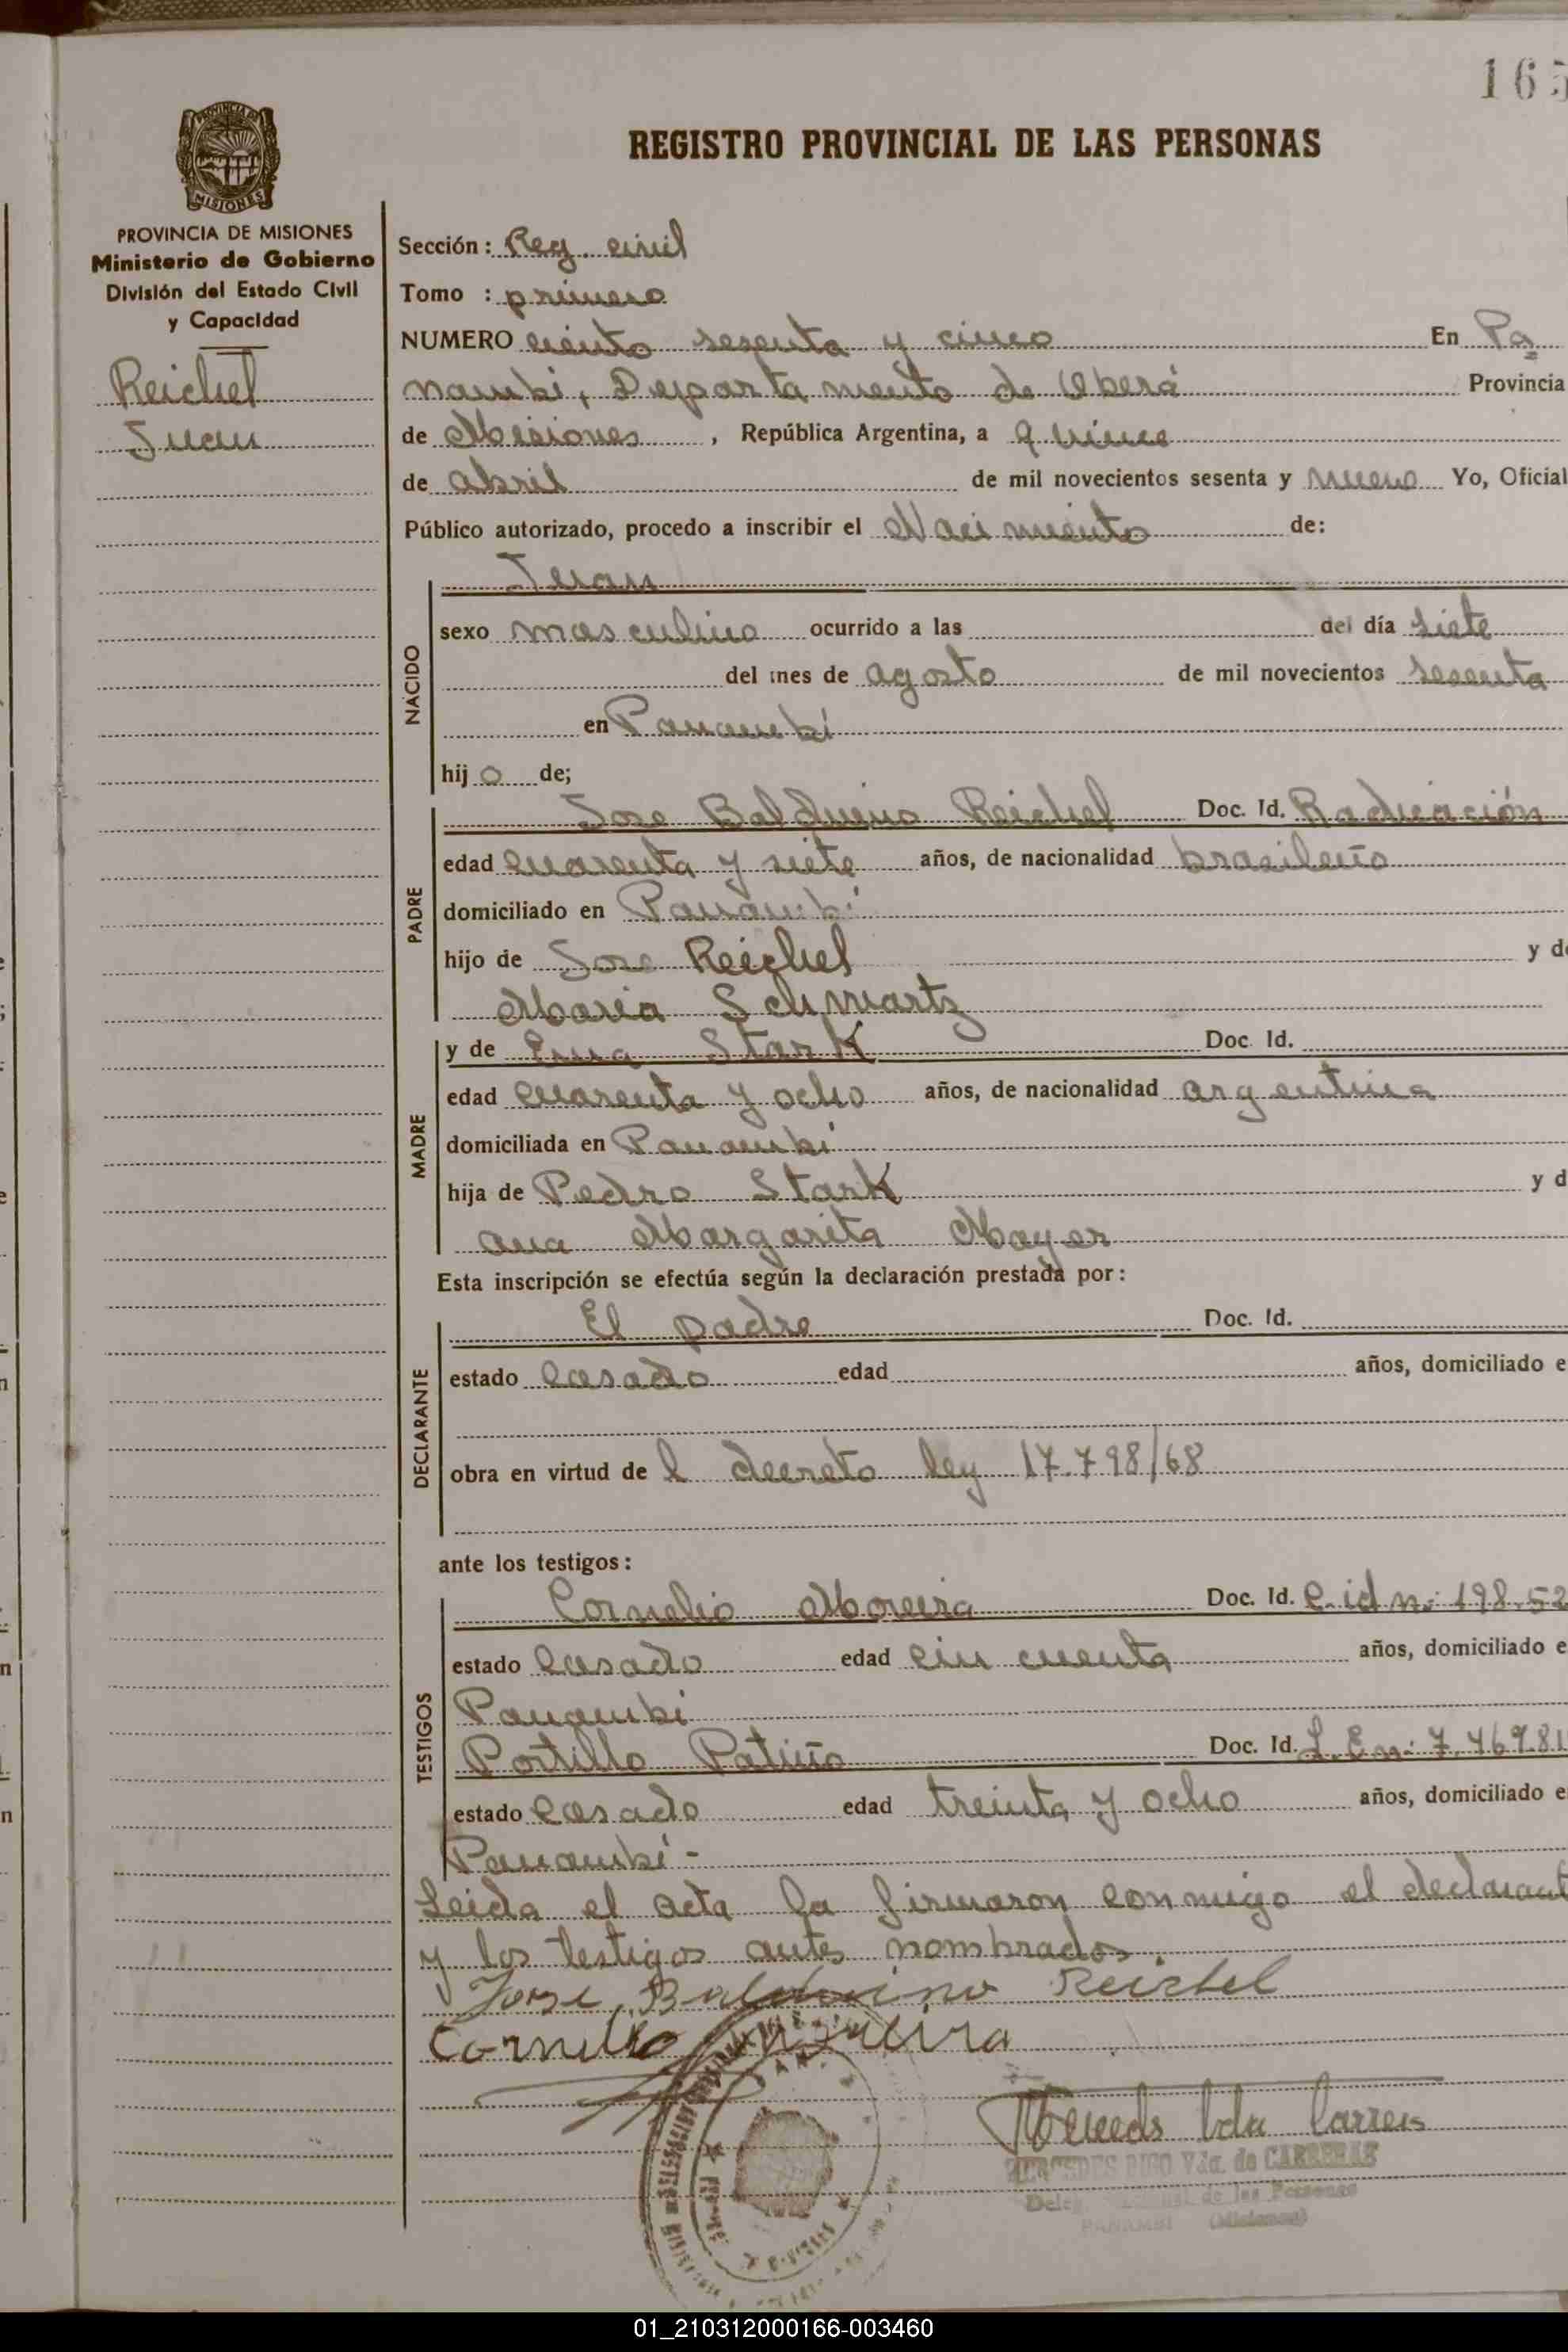 165
REGISTRO PROVINCIAL DE LAS PERSONAS
MISIONES
PROVINCIA DE MISIONES
Ministerio de Gobierno
División del Estado Civil
y Capacidad
Reichel
Juan
Sección: Reg. civil
Tomo : primero
NUMERO ciento sesenta y cinco En Pa
nambi, Departamento de Oberá Provincia
de Misiones, República Argentina, a quince
de abril de mil novecientos sesenta y nueve Yo, Oficial
Público autorizado, procedo a inscribir el Nacimiento de:
NACIDO
Juan
sexo masculino ocurrido a las del día siete
del mes de agosto de mil novecientos sesenta
en Panambí
hijo de;
PADRE
Jose Balduino Reichel Doc. Id. Radicación
edad cuarenta y siete años, de nacionalidad brasileño
domiciliado en Panambí
hijo de Jose Reichel y de
Maria Schwartz
MADRE
y de Stark Doc. Id.
edad cuarenta y ocho años, de nacionalidad argentina
domiciliada en Panambí
hija de Pedro Stark y d
Ana Margarita Mayer
Esta inscripción se efectúa según la declaración prestada por:
DECLARANTE
El padre Doc. Id.
estado casado edad años, domiciliado e
obra en virtud de l decreto ley 17.798/68
ante los testigos:
TESTIGOS
Cornelio Moreira Doc. Id. C. id n: 198.52
estado casado edad cincuenta años, domiciliado e
Panambi
Portillo Patiño Doc. Id. L. E n: 7.469.81
estado casado edad treinta y ocho años, domiciliado e
Panambí -
Leida el acta la firmaron conmigo el declarant
y los testigos antes nombrados.
Jose Balduino Reichel
Cornelio Moreira
MERCEDES Vda. de CARRERAS
de las Personas
PANAMBI (Misiones)
01_210312000166-003460